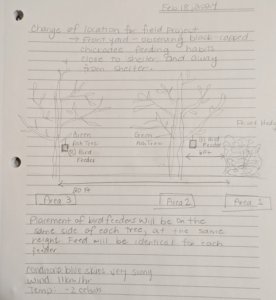 Feb 18, 2024
Change of location for field project
→ Front yard - observing black-capped
chickadee feeding habits
close to shelter and away
from shelter.
Green
Ash Tree
Bird
Feeder
Green
Ash Tree
Bird
Feeder
20 M
Area 3
Area 2
Area 1
Placement of bird feeders will be on the
same side of each tree, at the same
height. Feed will be identical for each
feeder.
blue skies very sunny
Wind: 11km/hr
Temp: -2